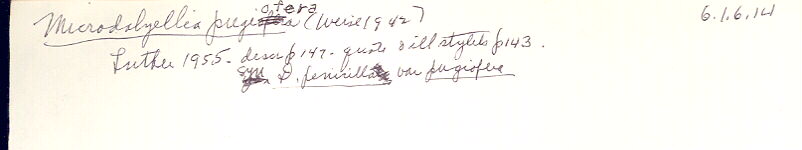 Microdalyellia pugiofera (Weise 1942) 6.1.6.14
Luther 1955 - descr p 147 - quote & ill stylets p 143.
Syn D. penicilla var pugiofera